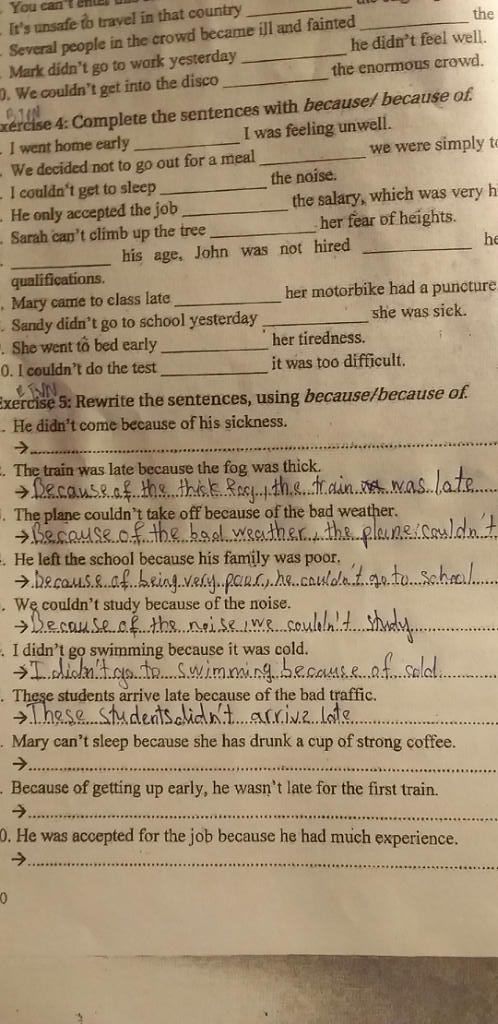 . You can't enter
. It's unsafe to travel in that country ____________
. Several people in the crowd became ill and fainted ____________ the
. Mark didn't go to work yesterday ____________ he didn't feel well.
0. We couldn't get into the disco ____________ the enormous crowd.
xercise 4: Complete the sentences with because/ because of.
. I went home early ____________ I was feeling unwell.
. We decided not to go out for a meal ____________ we were simply
. I couldn't get to sleep ____________ the noise.
. He only accepted the job ____________ the salary, which was very h
. Sarah can't climb up the tree ____________ her fear of heights.
. ____________ his age, John was not hired ____________ he
qualifications.
. Mary came to class late ____________ her motorbike had a puncture
. Sandy didn't go to school yesterday ____________ she was sick.
. She went to bed early ____________ her tiredness.
0. I couldn't do the test ____________ it was too difficult.
Exercise 5: Rewrite the sentences, using because/because of.
. He didn't come because of his sickness.
→
. The train was late because the fog was thick.
→ Because of the thick fog, the train was late
. The plane couldn't take off because of the bad weather.
→ Because of the bad weather, the plane couldn't
. He left the school because his family was poor.
→ Because of being very poor, he couldn't go to school
. We couldn't study because of the noise.
→ Because of the noise, we couldn't study
. I didn't go swimming because it was cold.
→ I didn't go to swimming because of cold
. These students arrive late because of the bad traffic.
→ These students didn't arrive late
. Mary can't sleep because she has drunk a cup of strong coffee.
→
. Because of getting up early, he wasn't late for the first train.
→
0. He was accepted for the job because he had much experience.
→
0